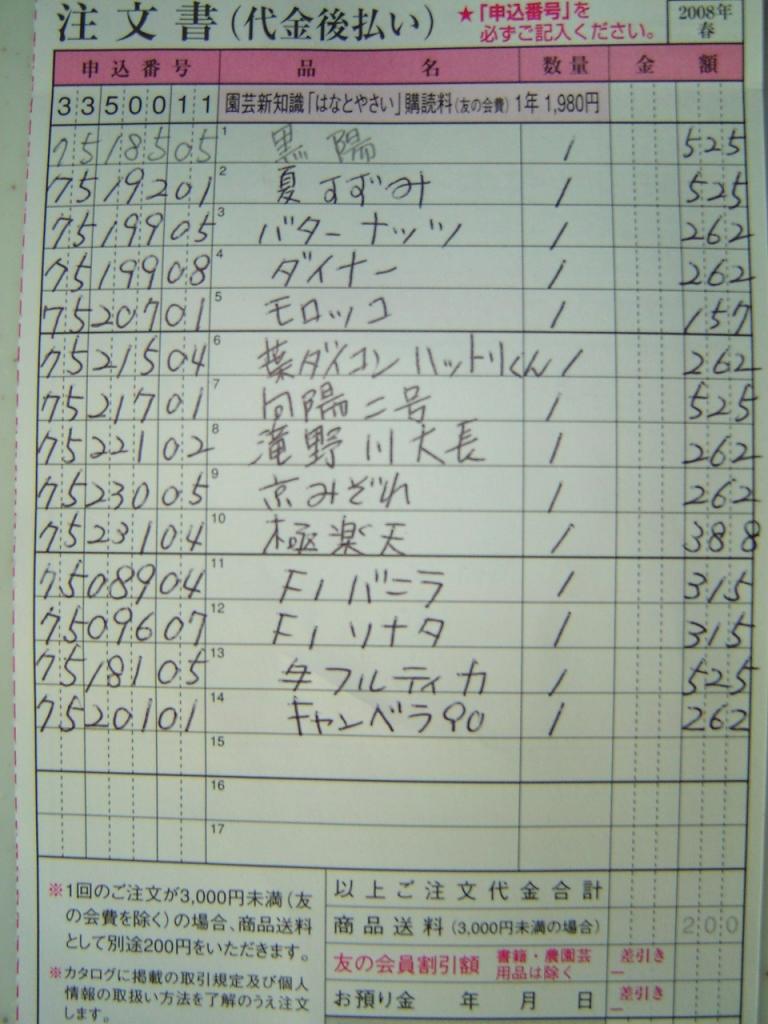 注文書(代金後払い) ★「申込番号」を必ずご記入ください。 2008年春
申込番号 品名 数量 金額
3350011 園芸新知識「はなとやさい」購読料(友の会費)1年1,980円
7518505 1 黒陽 1 525
7519201 2 夏すずみ 1 525
7519905 3 バターナッツ 1 262
7519908 4 ダイナー 1 262
7520701 5 モロッコ 1 157
7521504 6 葉ダイコン ハットリくん 1 262
7521701 7 向陽二号 1 525
7522102 8 滝野川大長 1 262
7523005 9 京みぞれ 1 262
7523104 10 極楽天 1 388
7508904 11 F1バニラ 1 315
7509607 12 F1ソナタ 1 315
7518105 13 フルティカ 1 525
7520101 14 キャンベラ90 1 262
15
16
17
※1回のご注文が3,000円未満(友の会費を除く)の場合、商品送料として別途200円をいただきます。
※カタログに掲載の取引規定及び個人情報の取扱い方法を了解のうえ注文します。
以上ご注文代金合計
商品送料(3,000円未満の場合) 200
友の会員割引額 書籍・農園芸用品は除く 差引き −
お預り金 年 月 日 差引き −